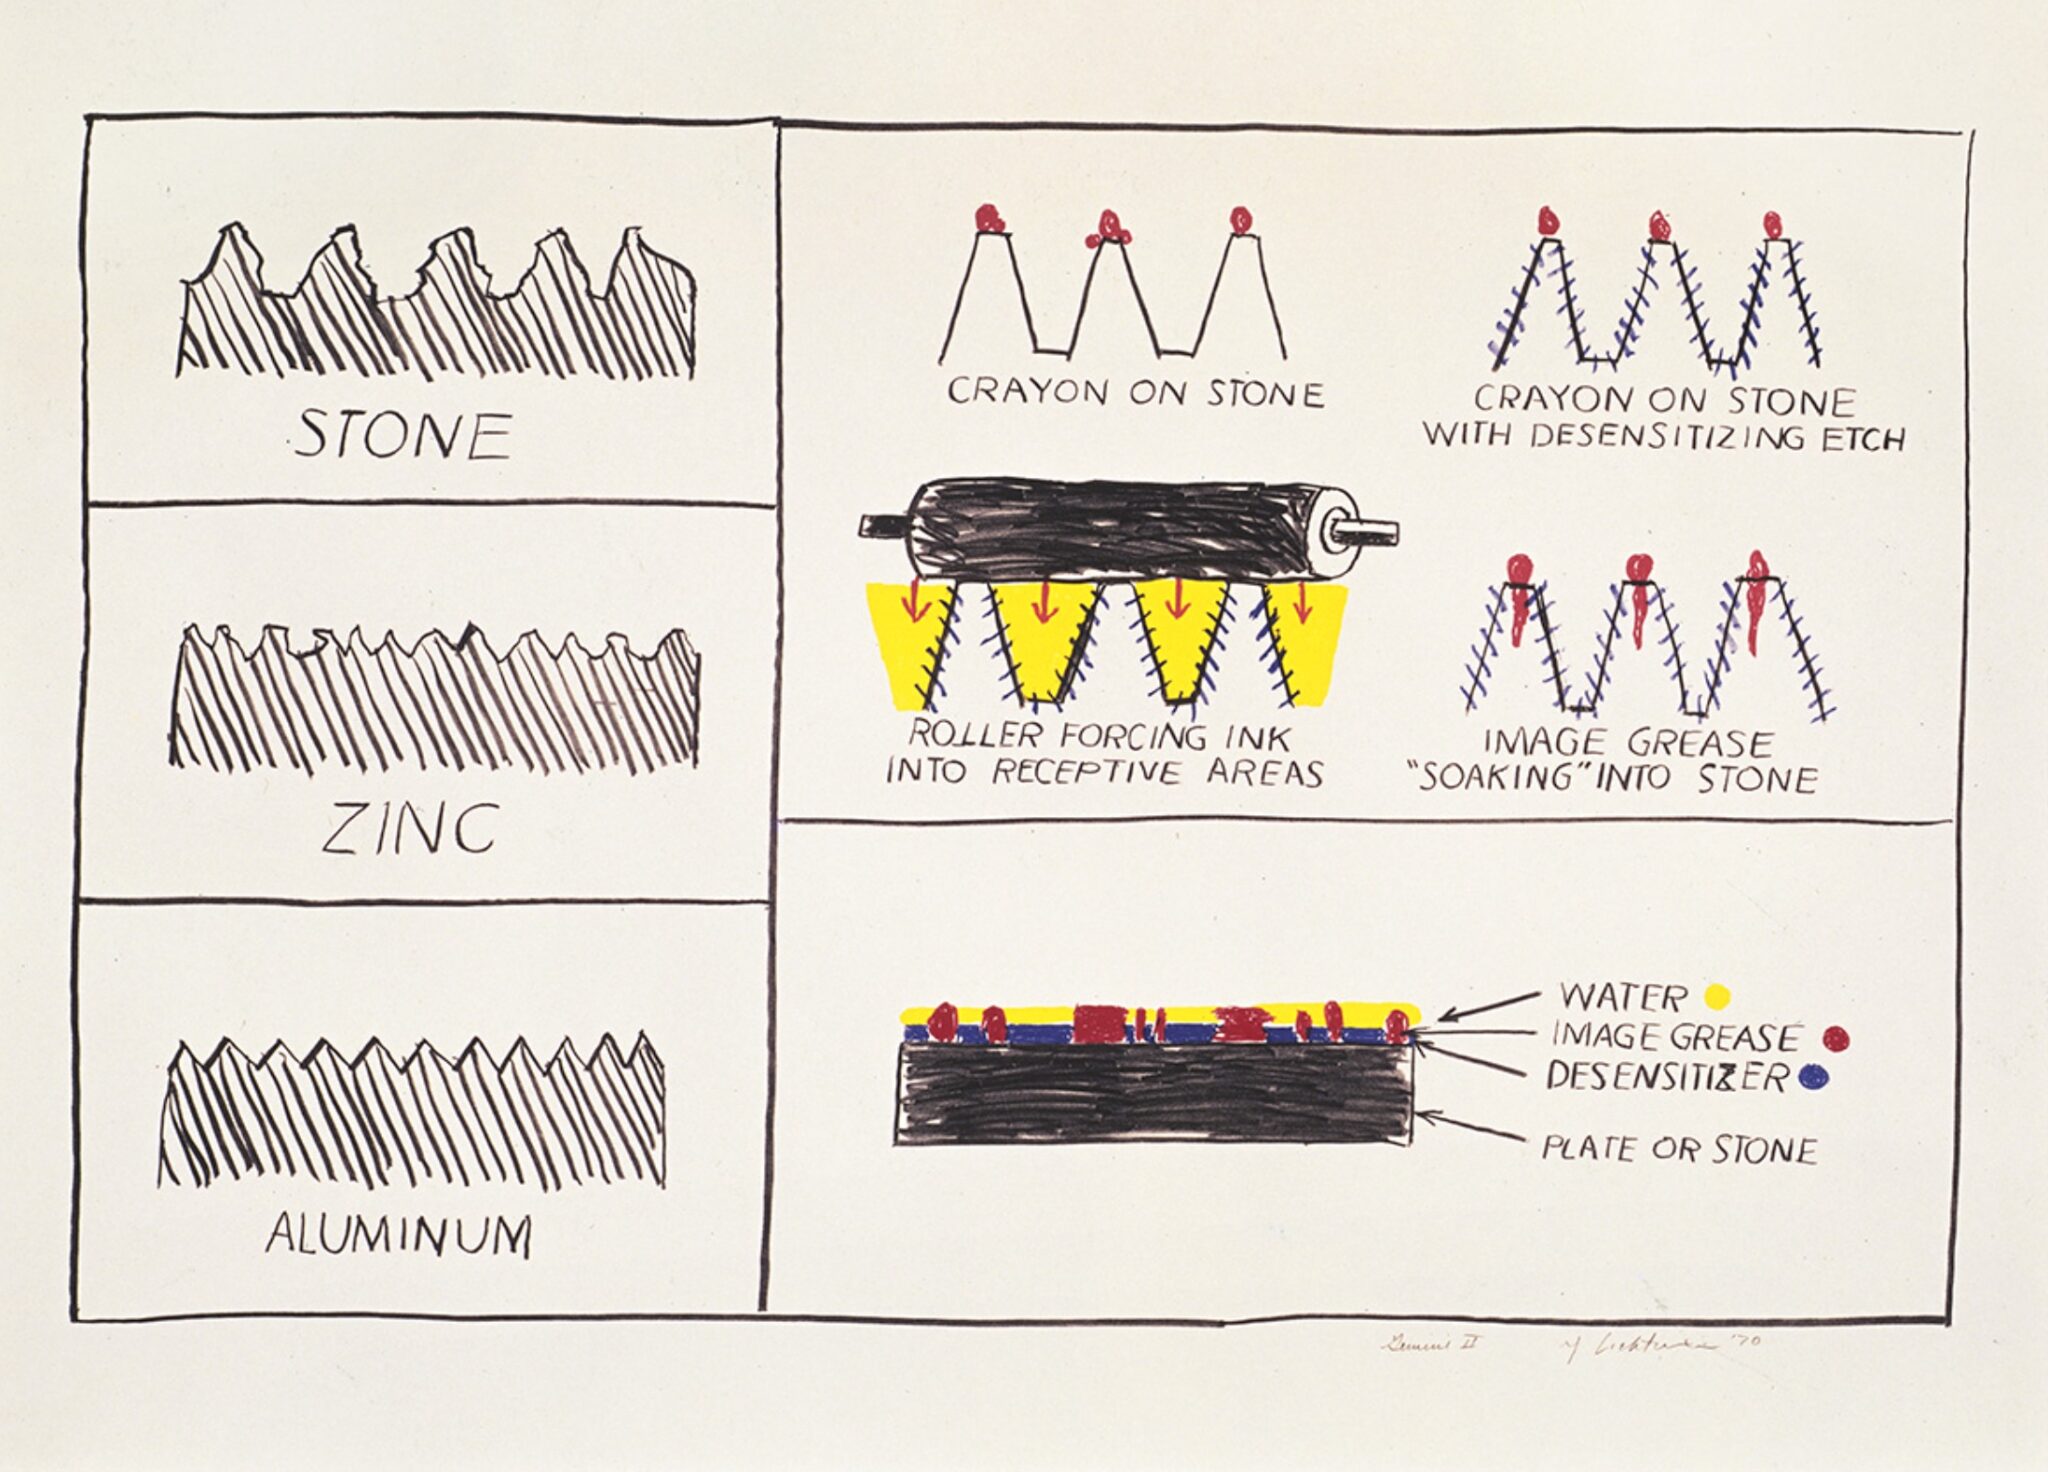 STONE
ZINC
ALUMINUM
CRAYON ON STONE
CRAYON ON STONE
WITH DESENSITIZING ETCH
ROLLER FORCING INK
INTO RECEPTIVE AREAS
IMAGE GREASE
"SOAKING" INTO STONE
WATER
IMAGE GREASE
DESENSITIZER
PLATE OR STONE
Gemini II
rf Lichtenstein '70